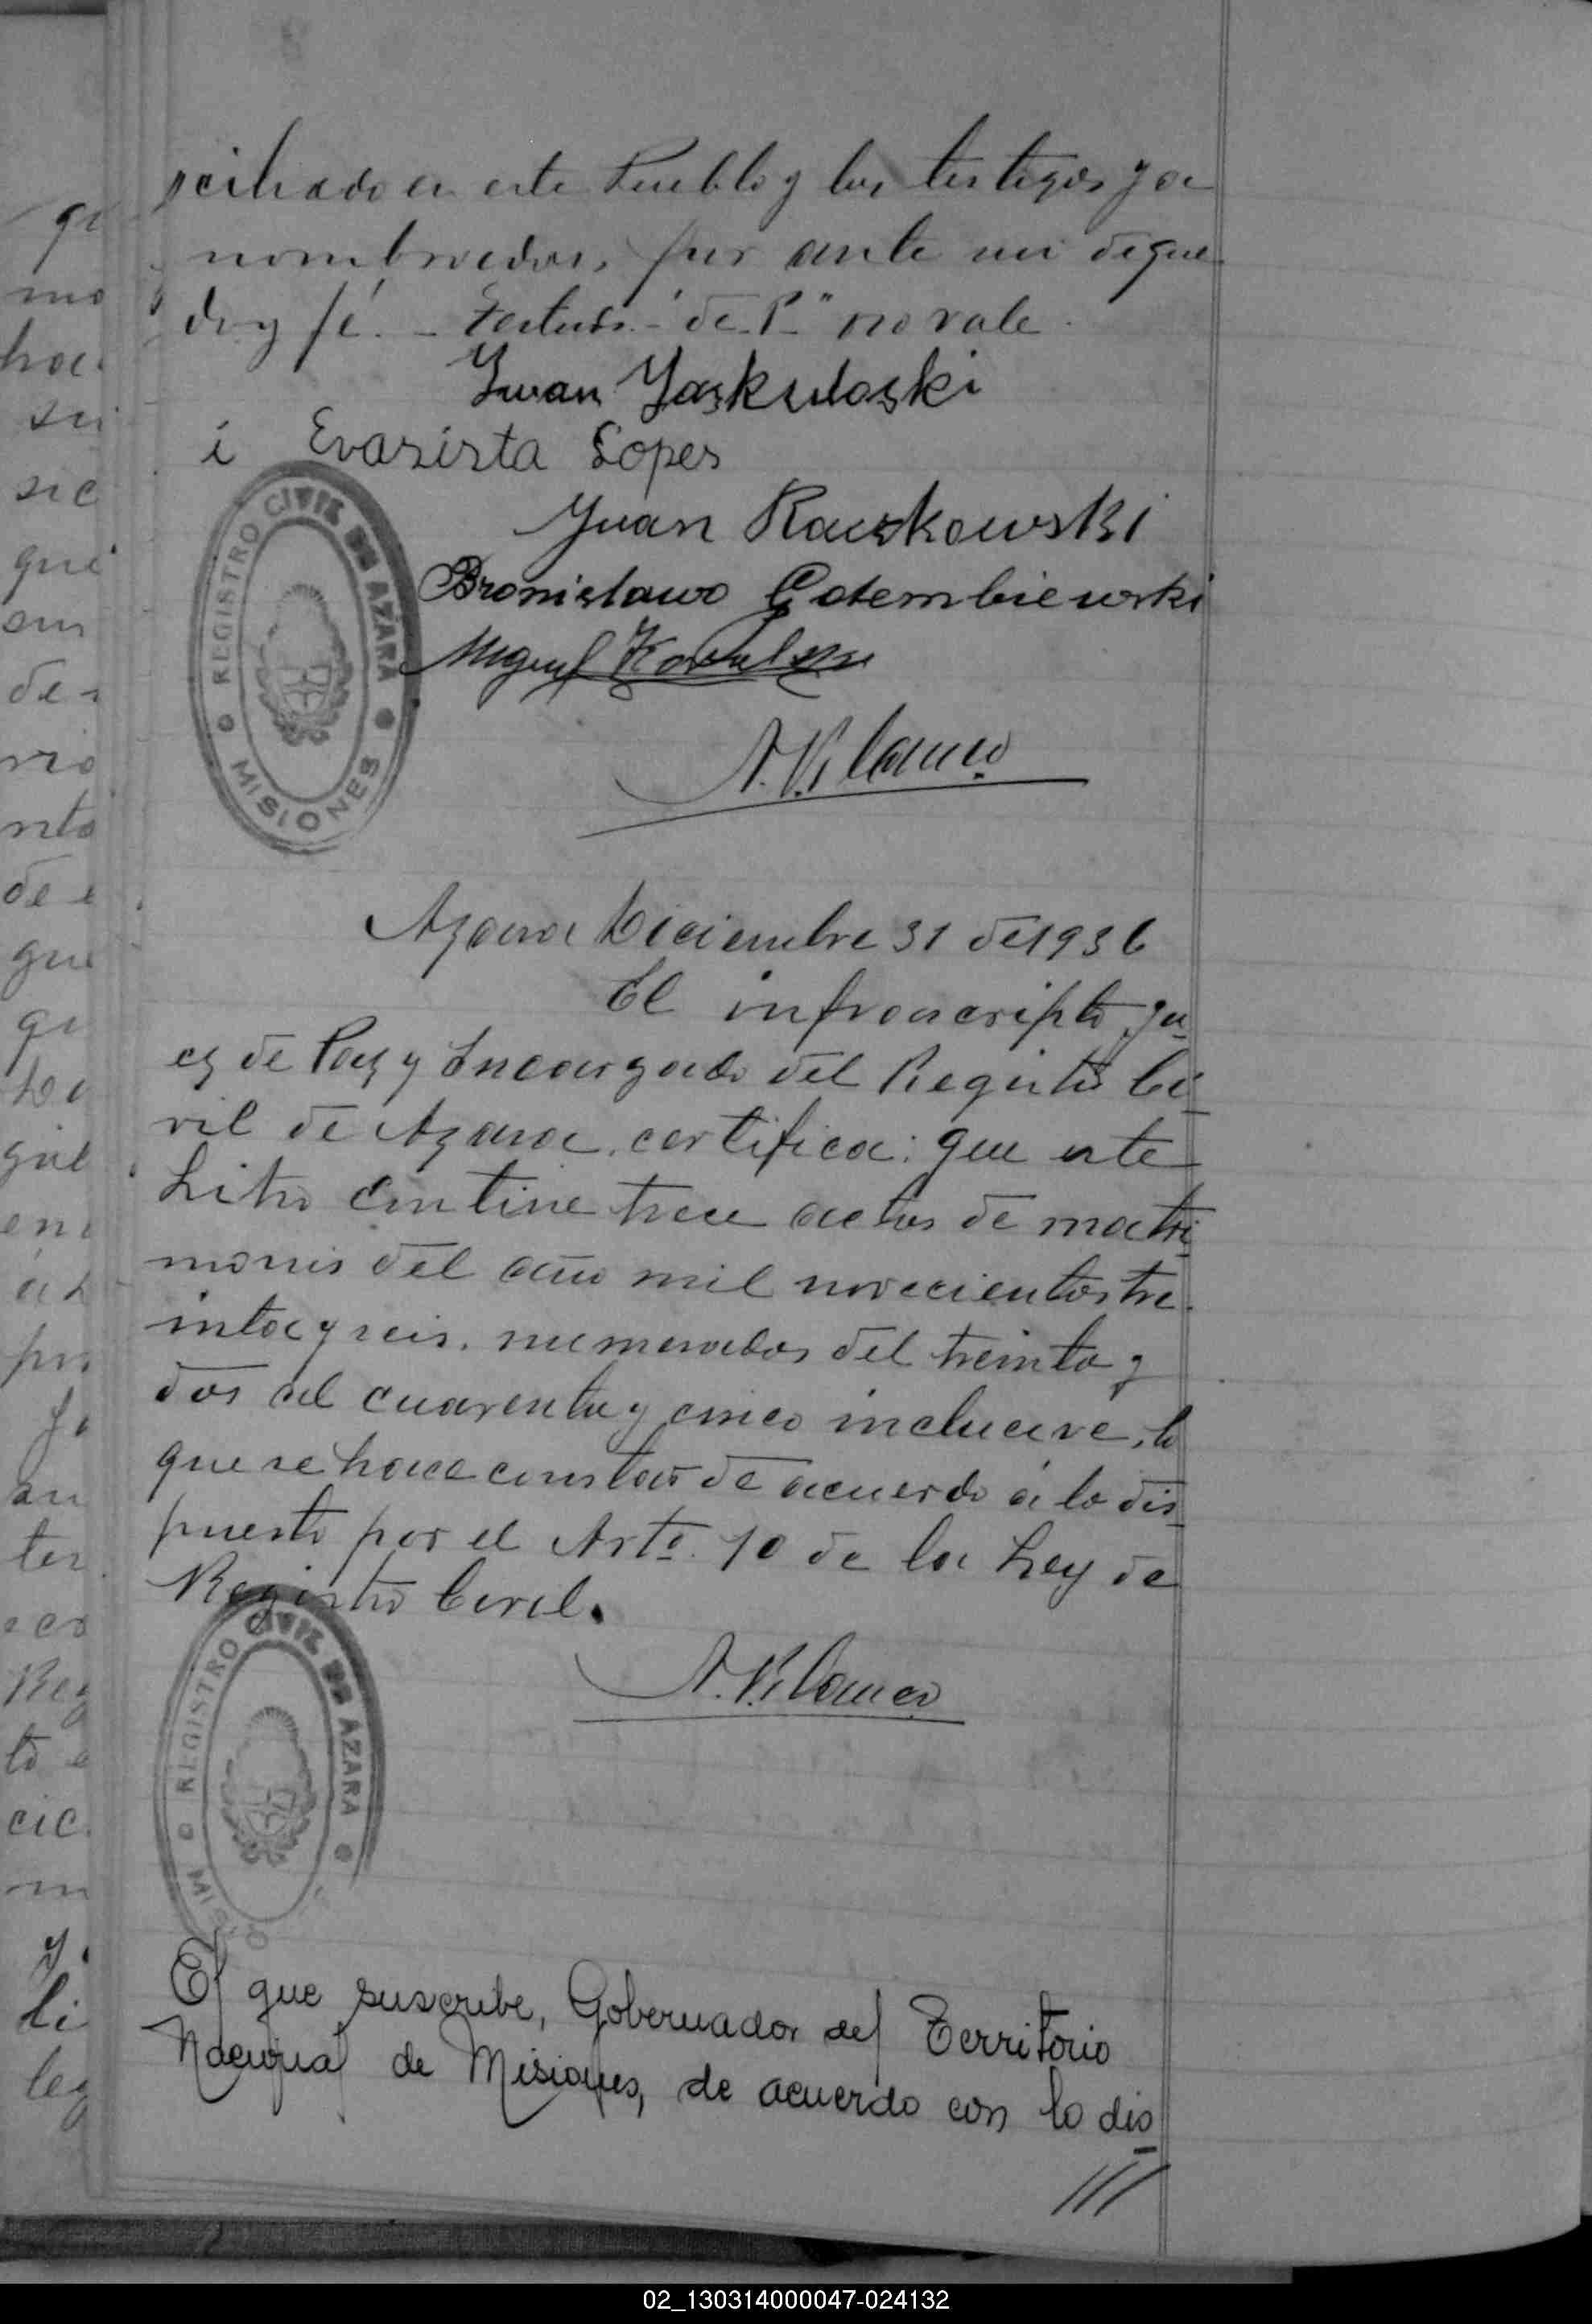 ciliado en este Pueblo y los testigos ya
nombrados, por ante mi de que
doy fé. _ Testado: "de P_" no vale.
Juan Jaskuloski
i Evarista Lopes
Juan Raczkowski
Bronislawo Gotembiewski
Miguel
REGISTRO CIVIL DE AZARA
MISIONES
A. V. Blanco
Azara Diciembre 31 de 1936
El infrascripto, Ju_
ez de Paz y Encargado del Registro Ci_
vil de Azara, certifica: que este
Libro contiene trece actas de matri_
monios del año mil novecientos tre_
inta y seis, numerados del treinta y
dos al cuarenta y cinco incluceve, lo
que se hace constar de acuerdo á lo dis_
puesto por el Arto. 10 de la Ley de
Registro Civil.
A. V. Blanco
REGISTRO CIVIL DE AZARA
MIS
El que suscribe, Gobernador del Territorio
Nacional de Misiones, de acuerdo con lo dis_
///
02_130314000047-024132